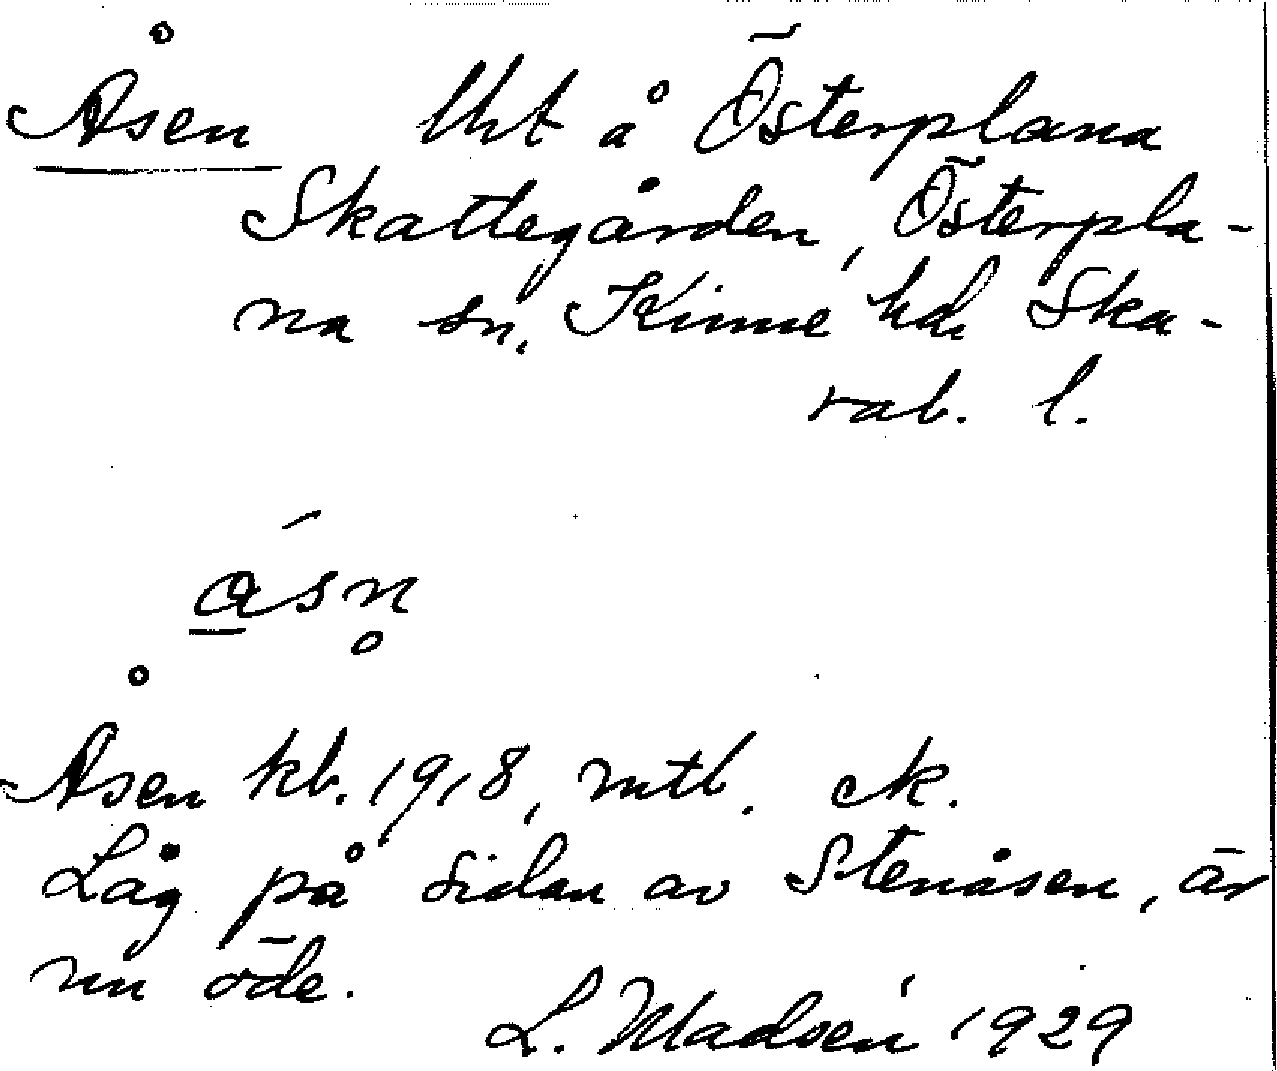 Åsen lht å Österplana
Skattegården, Österpla-
na sn, Kinne hd, Ska-
rab. l.
åsn̥
Åsen kb. 1918, mtb. ek.
Låg på sidan av Stenåsen, är
nu öde.
L. Madsén 1929